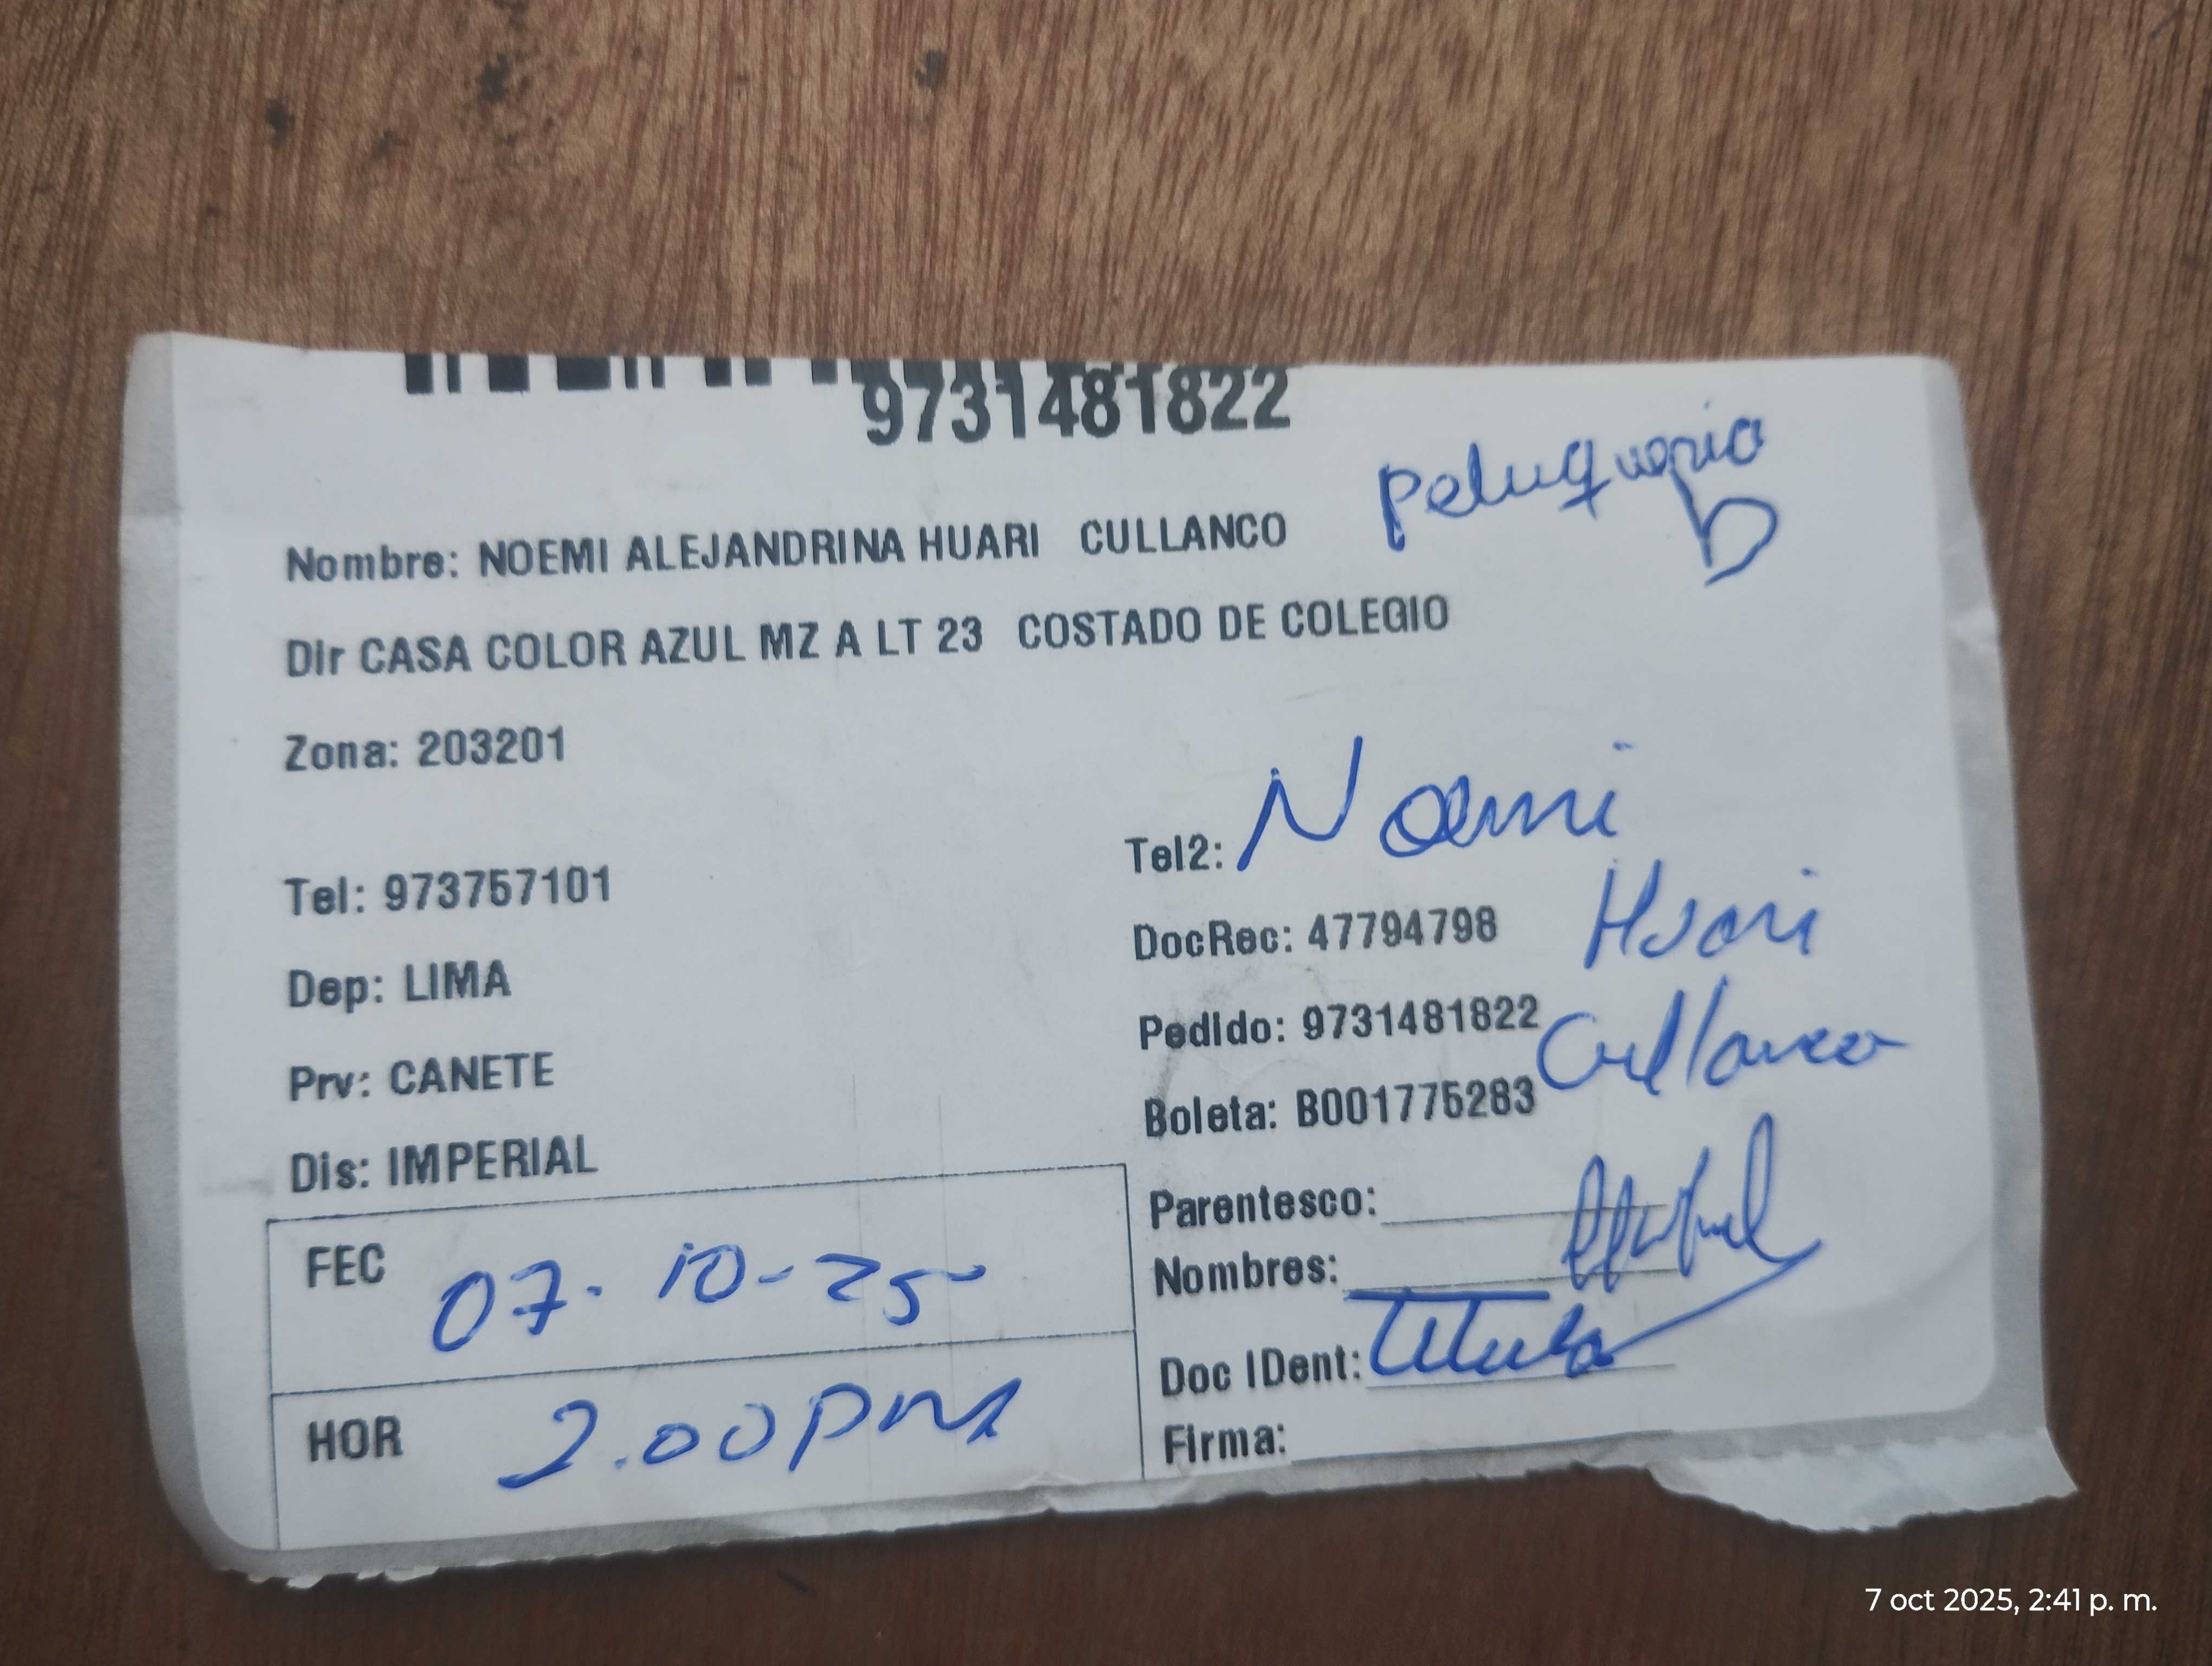 9731481822
peluqueria
Nombre: NOEMI ALEJANDRINA HUARI CULLANCO
Dir CASA COLOR AZUL MZ A LT 23 COSTADO DE COLEGIO
Zona: 203201
Tel: 973757101
Dep: LIMA
Prv: CANETE
Dis: IMPERIAL
FEC 07-10-25
HOR 2.00 pm
Tel2: Noemi
DocRec: 47794798 Huari
Pedido: 9731481822 Cullanco
Boleta: B001775283
Parentesco:
Nombres:
Doc IDent: titular
Firma:
7 oct 2025, 2:41 p. m.